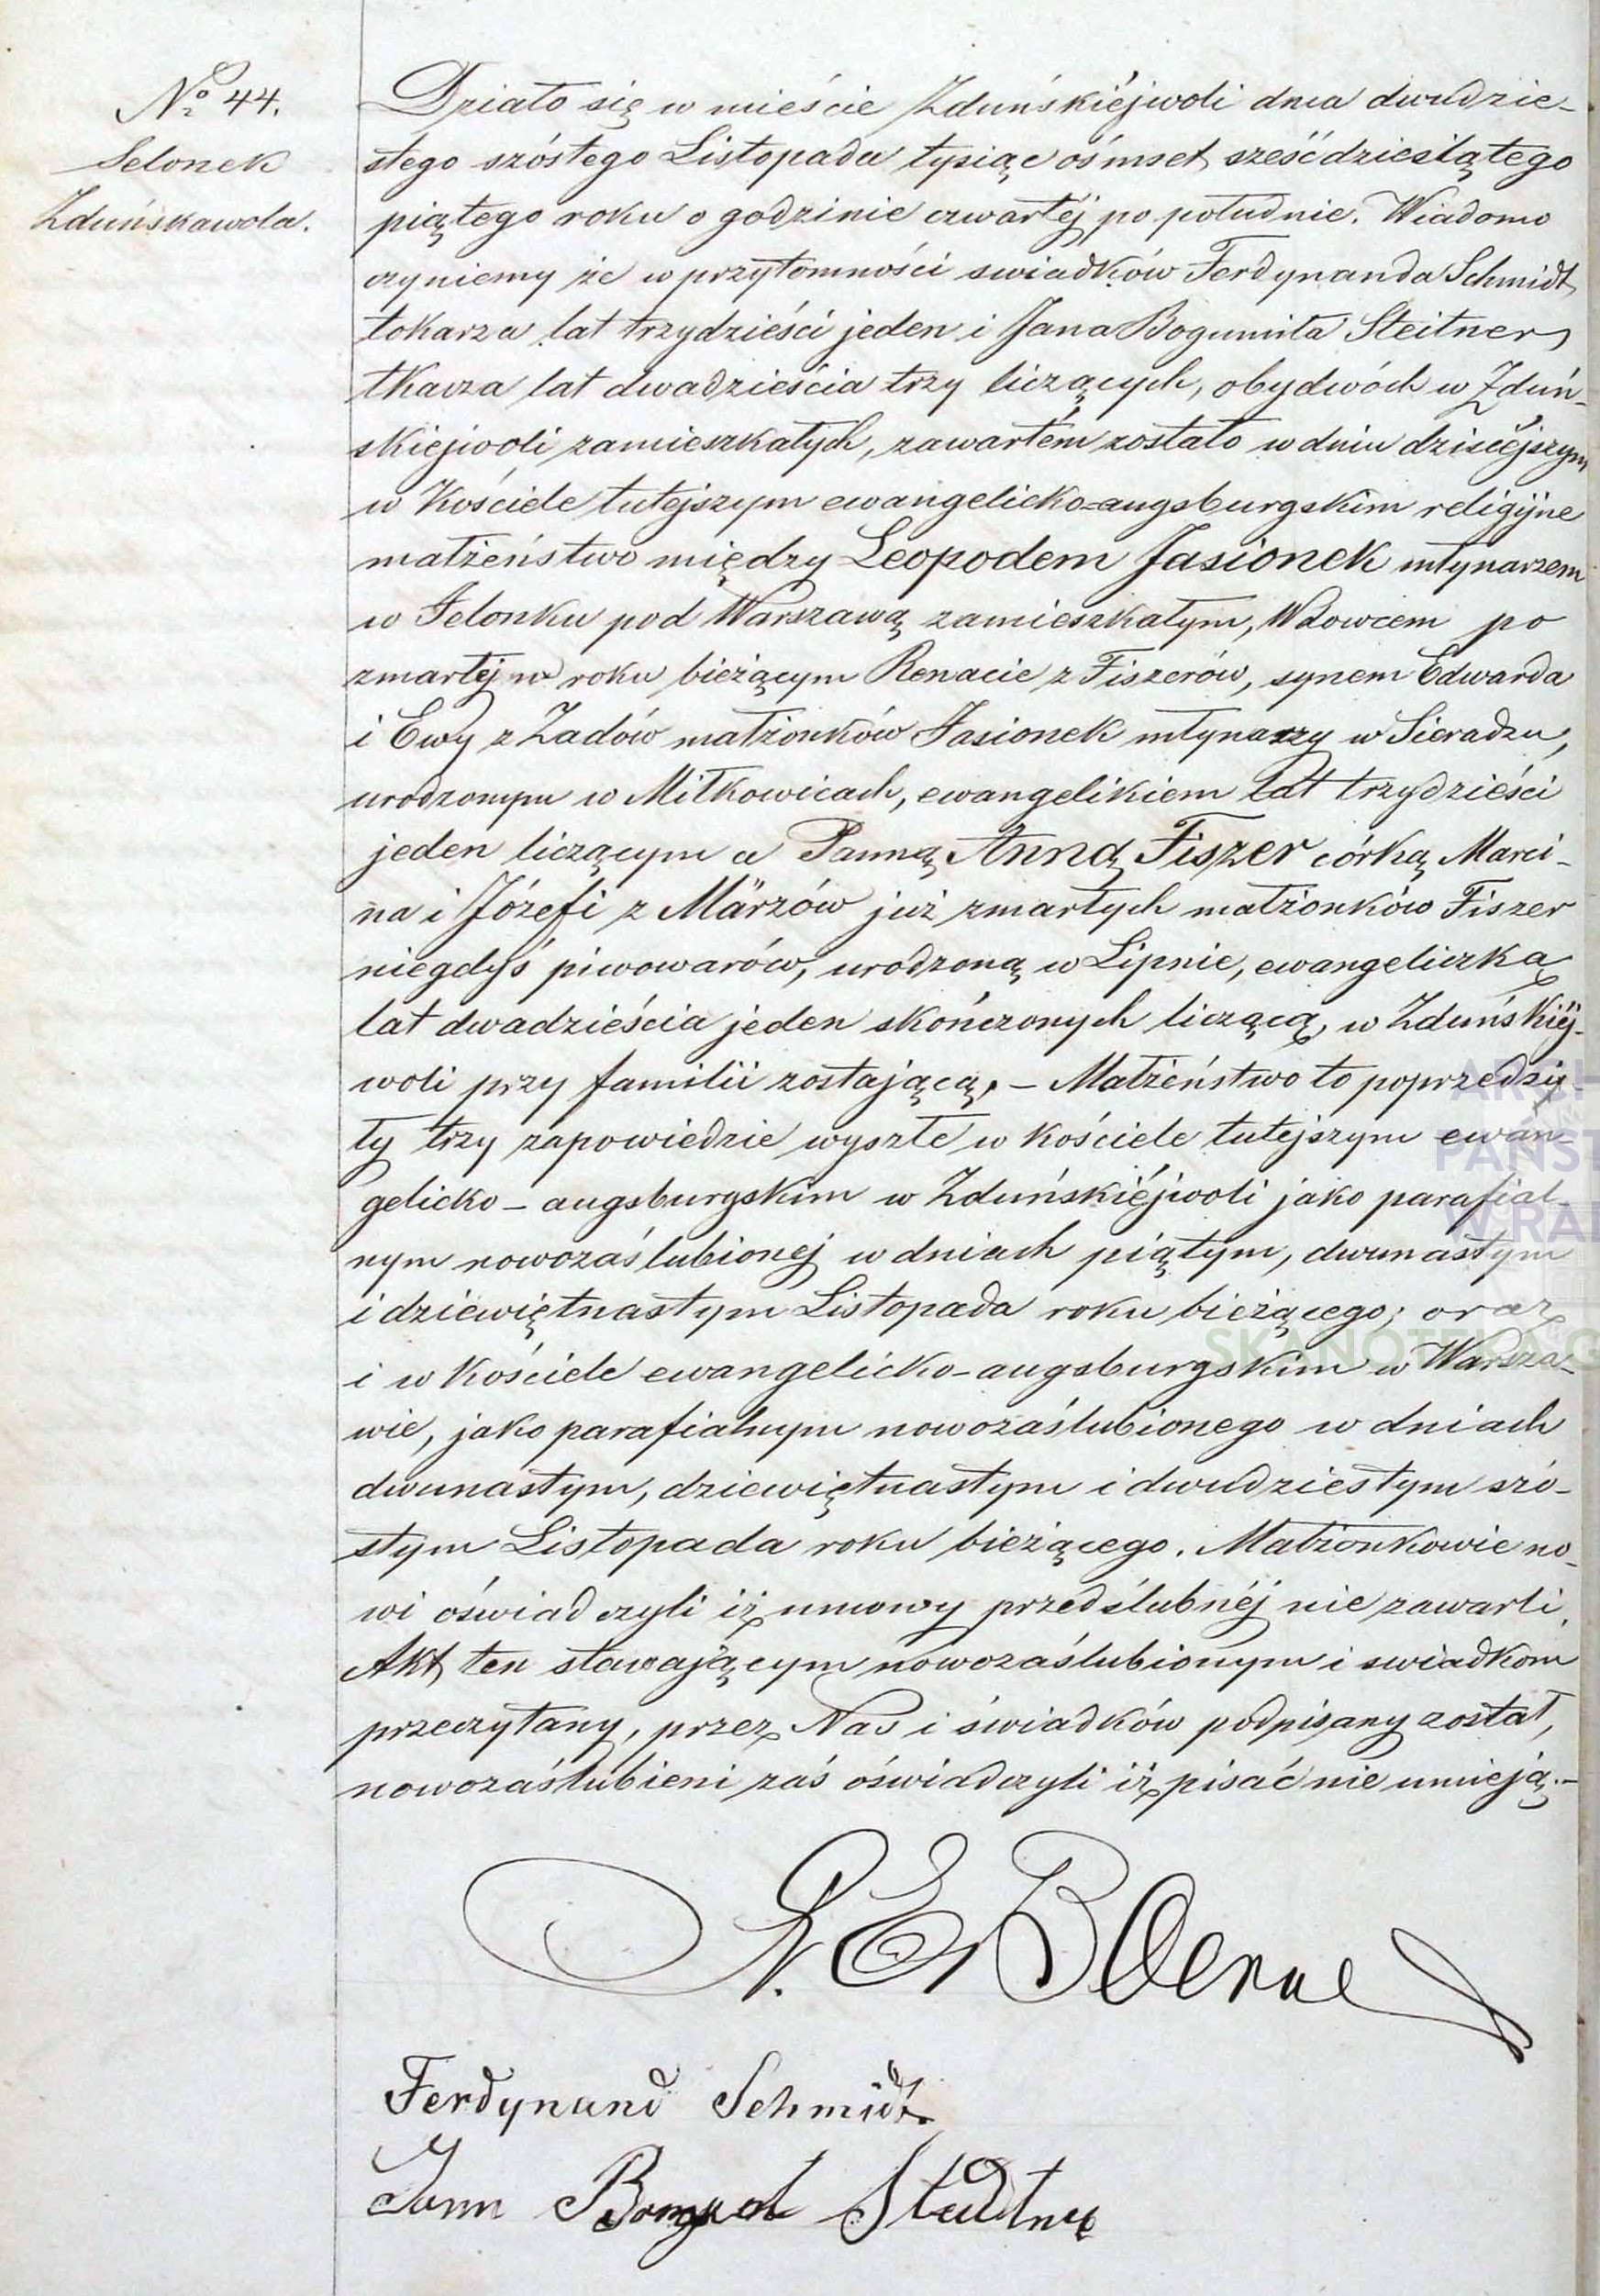 No 44.
Jelonek
Zduńskawola.
Działo się w mieście Zduńskiéjwoli dnia dwudzie-
stego szóstego Listopada tysiąc ośmset sześćdziesiątego
piątego roku o godzinie czwartéj po południe. Wiadomo
czyniemy że w przytomności swiadków Ferdynanda Schmidt
tokarza lat trzydzieści jeden i Jana Bogumiła Steitner
tkacza lat dwadzieścia trzy liczących, obydwóch w Zduń-
skiejwoli zamieszkałych, zawartém zostało w dniu dzisiejszym
w Kościele tutejszym ewangelicko-augsburgskim religijne
małżeństwo między Leopodem Jasionek młynarzem
w Jelonku pod Warszawą zamieszkałym, Wdowcem po
zmarłéj w roku bieżącym Renacie z Fiszerów, synem Edwarda
i Ewy z Zadów małżonków Jasionek młynarzy w Sieradzu,
urodzonym w Miłkowicach, ewangelikiem lat trzydzieści
jeden liczącym a Panną Anną Fiszer córką Marci-
na i Józefi z Märzów już zmarłych małżonków Fiszer
niegdyś piwowarów, urodzoną w Lipnie, ewangeliczką
lat dwadzieścia jeden skończonych liczącą, w Zduńskiéj-
woli przy familii zostającą. – Małżeństwo to poprzedzi-
ły trzy zapowiedzie wyszłe w kościele tutejszym ewan-
gelicko – augsburgskim w Zduńskiéjwoli jako parafial-
nym nowozaślubionej w dniach piątym, dwunastym
i dziewiętnastym Listopada roku bieżącego; oraz
i w kościele ewangelicko-augsburgskim w Warsza-
wie, jako parafialnym nowozaślubionego w dniach
dwunastym, dziewiętnastym i dwudziestym szó-
stym Listopada roku bieżącego. Małżonkowie no-
wi oświadczyli iż umowy przedślubnéj nie zawarli.
Akt ten stawającym nowozaślubionym i swiadkom
przeczytany, przez Nas i świadków podpisany został,
nowozaślubieni zaś oświadczyli iż pisać nie umieją. –
Boerne
Ferdynand Schmidt
Jann